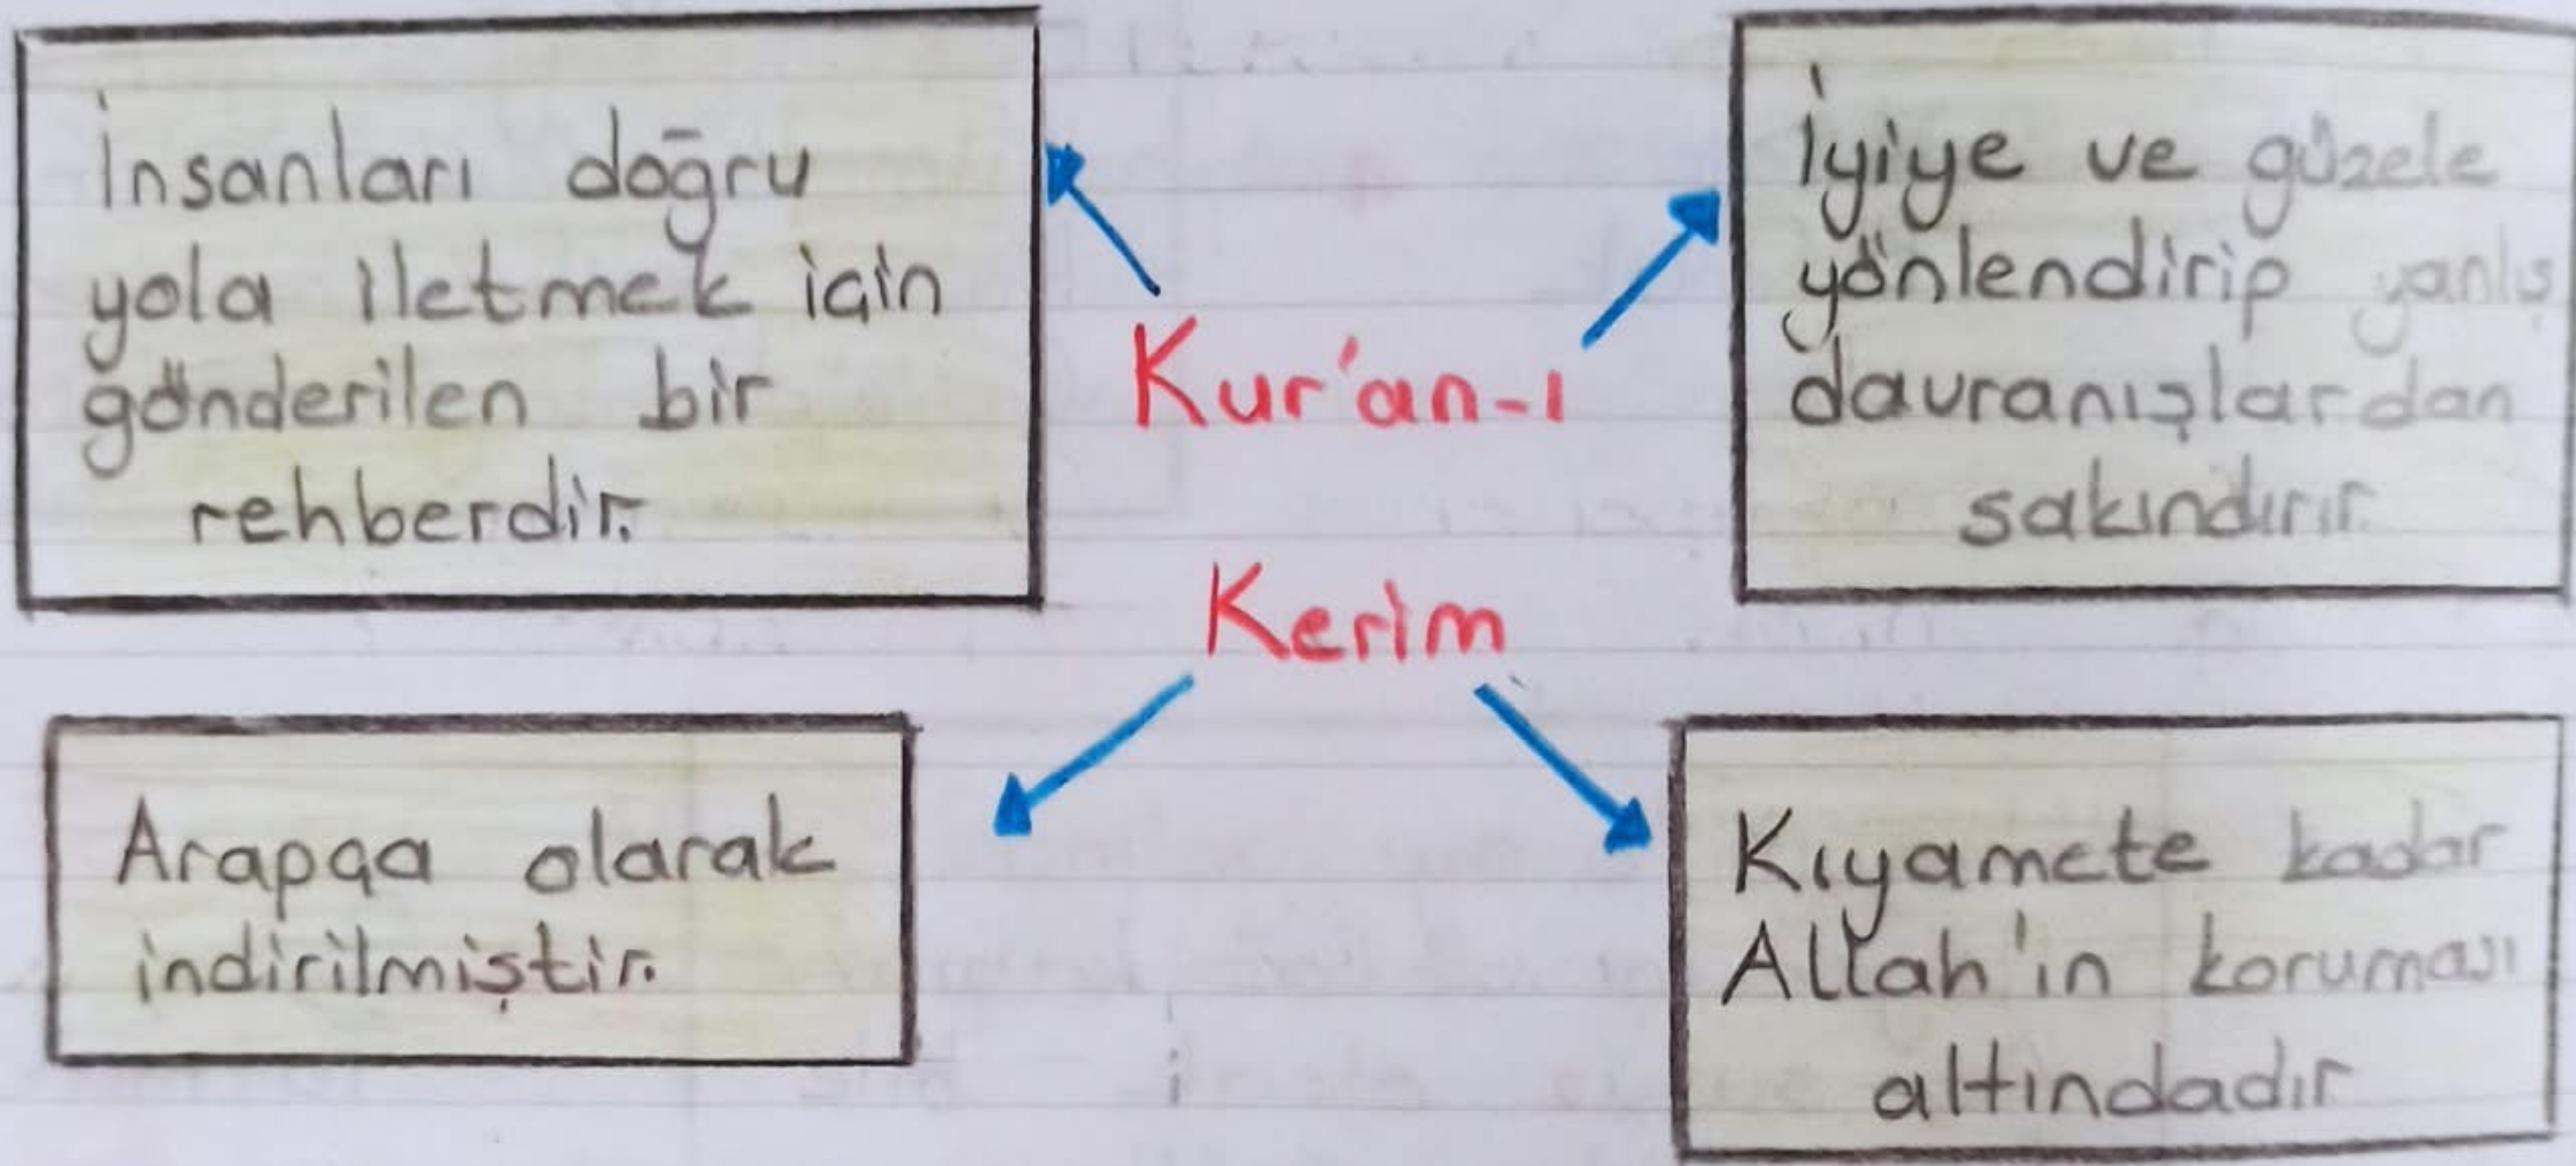 İnsanları doğru
yola iletmek için
gönderilen bir
rehberdir.
Kur'an-ı
Kerim
İyiye ve güzele
yönlendirip yanlış
davranışlardan
sakındırır.
Arapça olarak
indirilmiştir.
Kıyamete kadar
Allah'ın koruması
altındadır